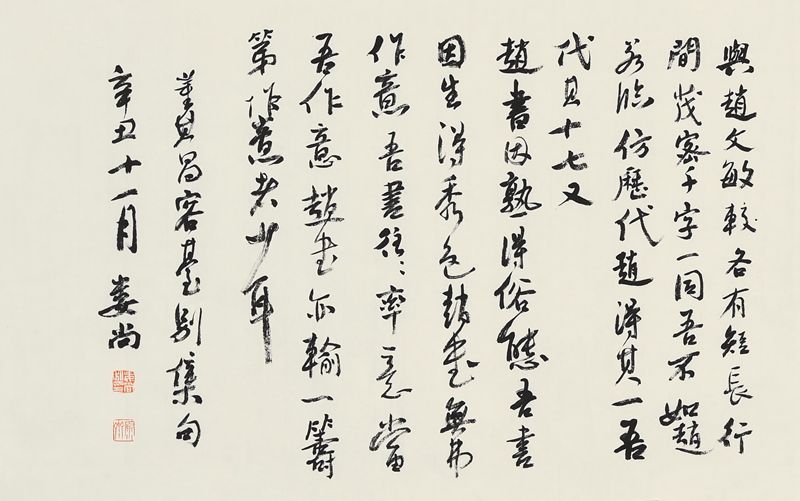 與趙文敏較各有短長行
間茂密千字一同吾不如趙
若臨仿歷代趙得其一吾
代其十七又
趙書因熟得俗態吾書
因生得秀色趙書無弗
作意吾書往〻率意當
吾作意趙書亦輸一籌
第作意者少耳
董其昌容臺別集句
辛丑十一月婁尚